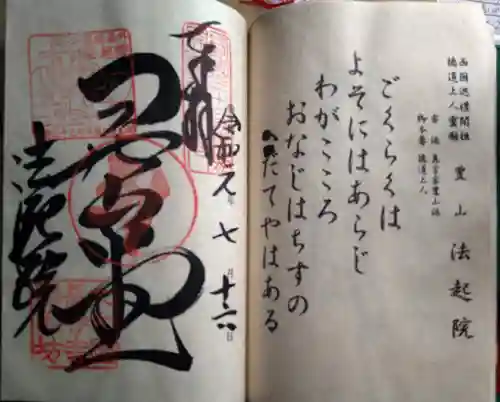 西国巡礼開祖
徳道上人霊廟
豊山 法起院
宗派 真言宗豊山派
御本尊 徳道上人
ごくらくは
よそにはあらじ
わがこころ
おなじはちすの
へだてやはある
奉拝
令和元年七月十六日
開山堂
法起院